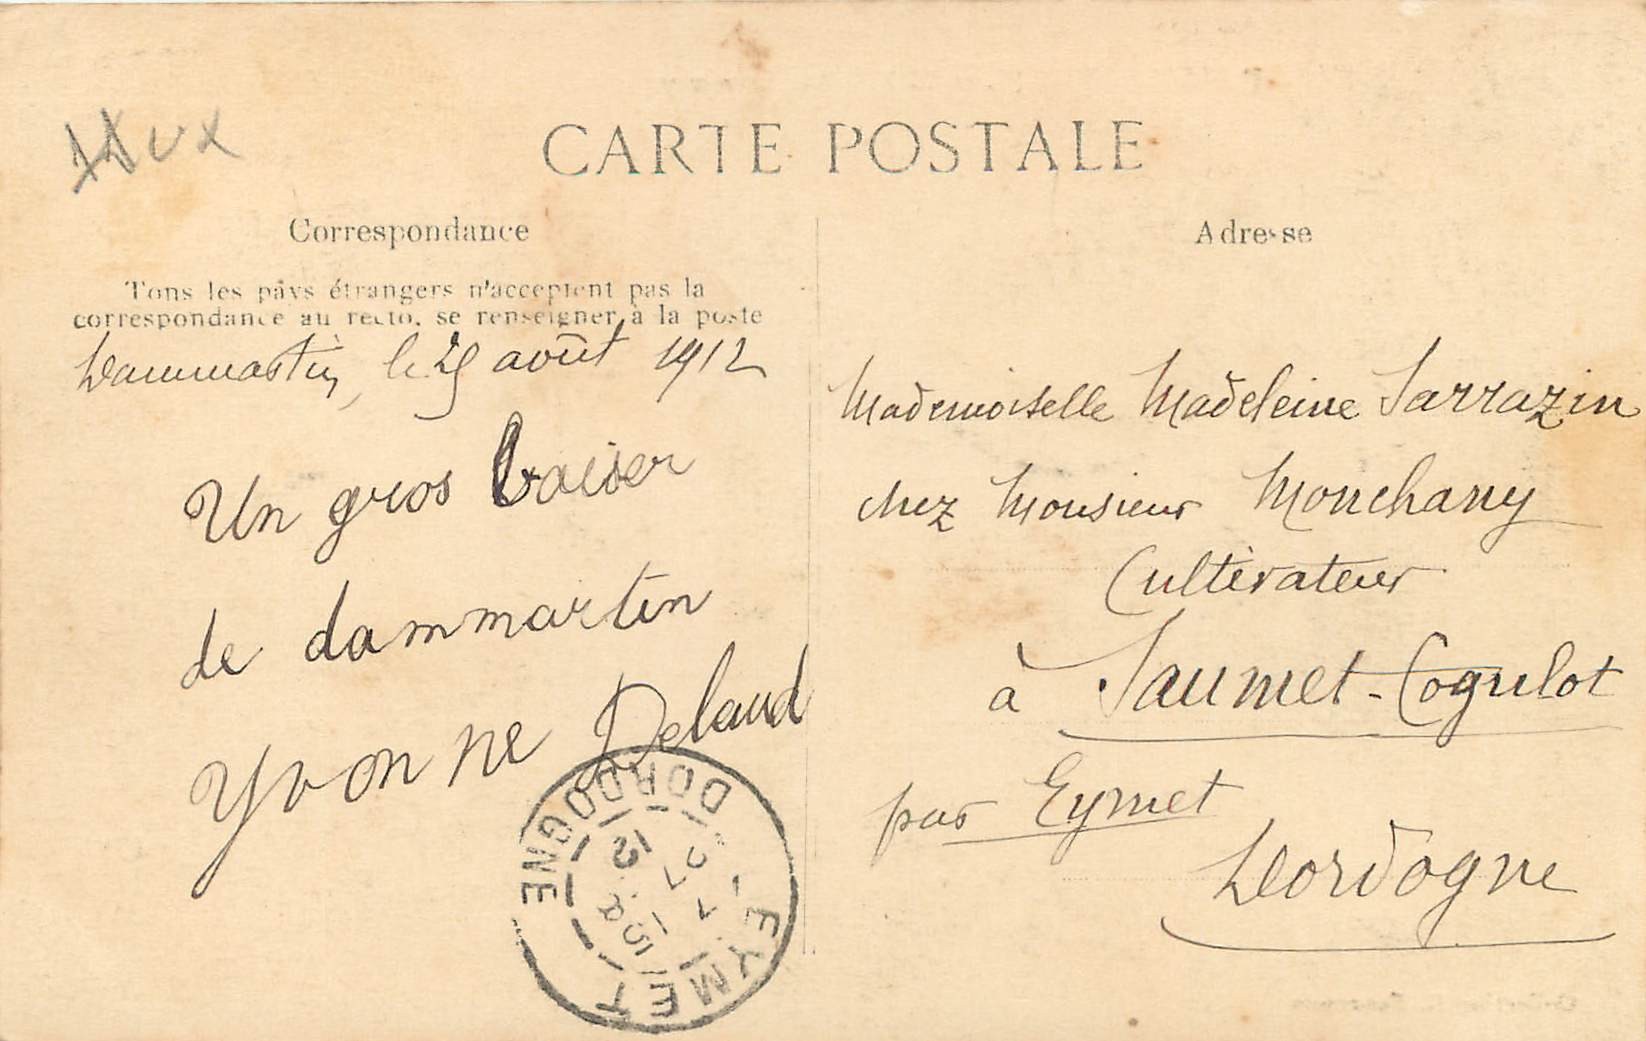 CARTE POSTALE
Correspondance
Tous les pays étrangers n'acceptent pas la
correspondance au recto, se renseigner à la poste
Dammartin, le 25 août 1912
Un gros baiser
de dammartin
Yvonne Delaud
Adresse
Mademoiselle Madeleine Sarrazin
chez Monsieur Monchany
Cultivateur
à Saumet-Cogulot
par Eymet
Dordogne
EYMET
DORDOGNE